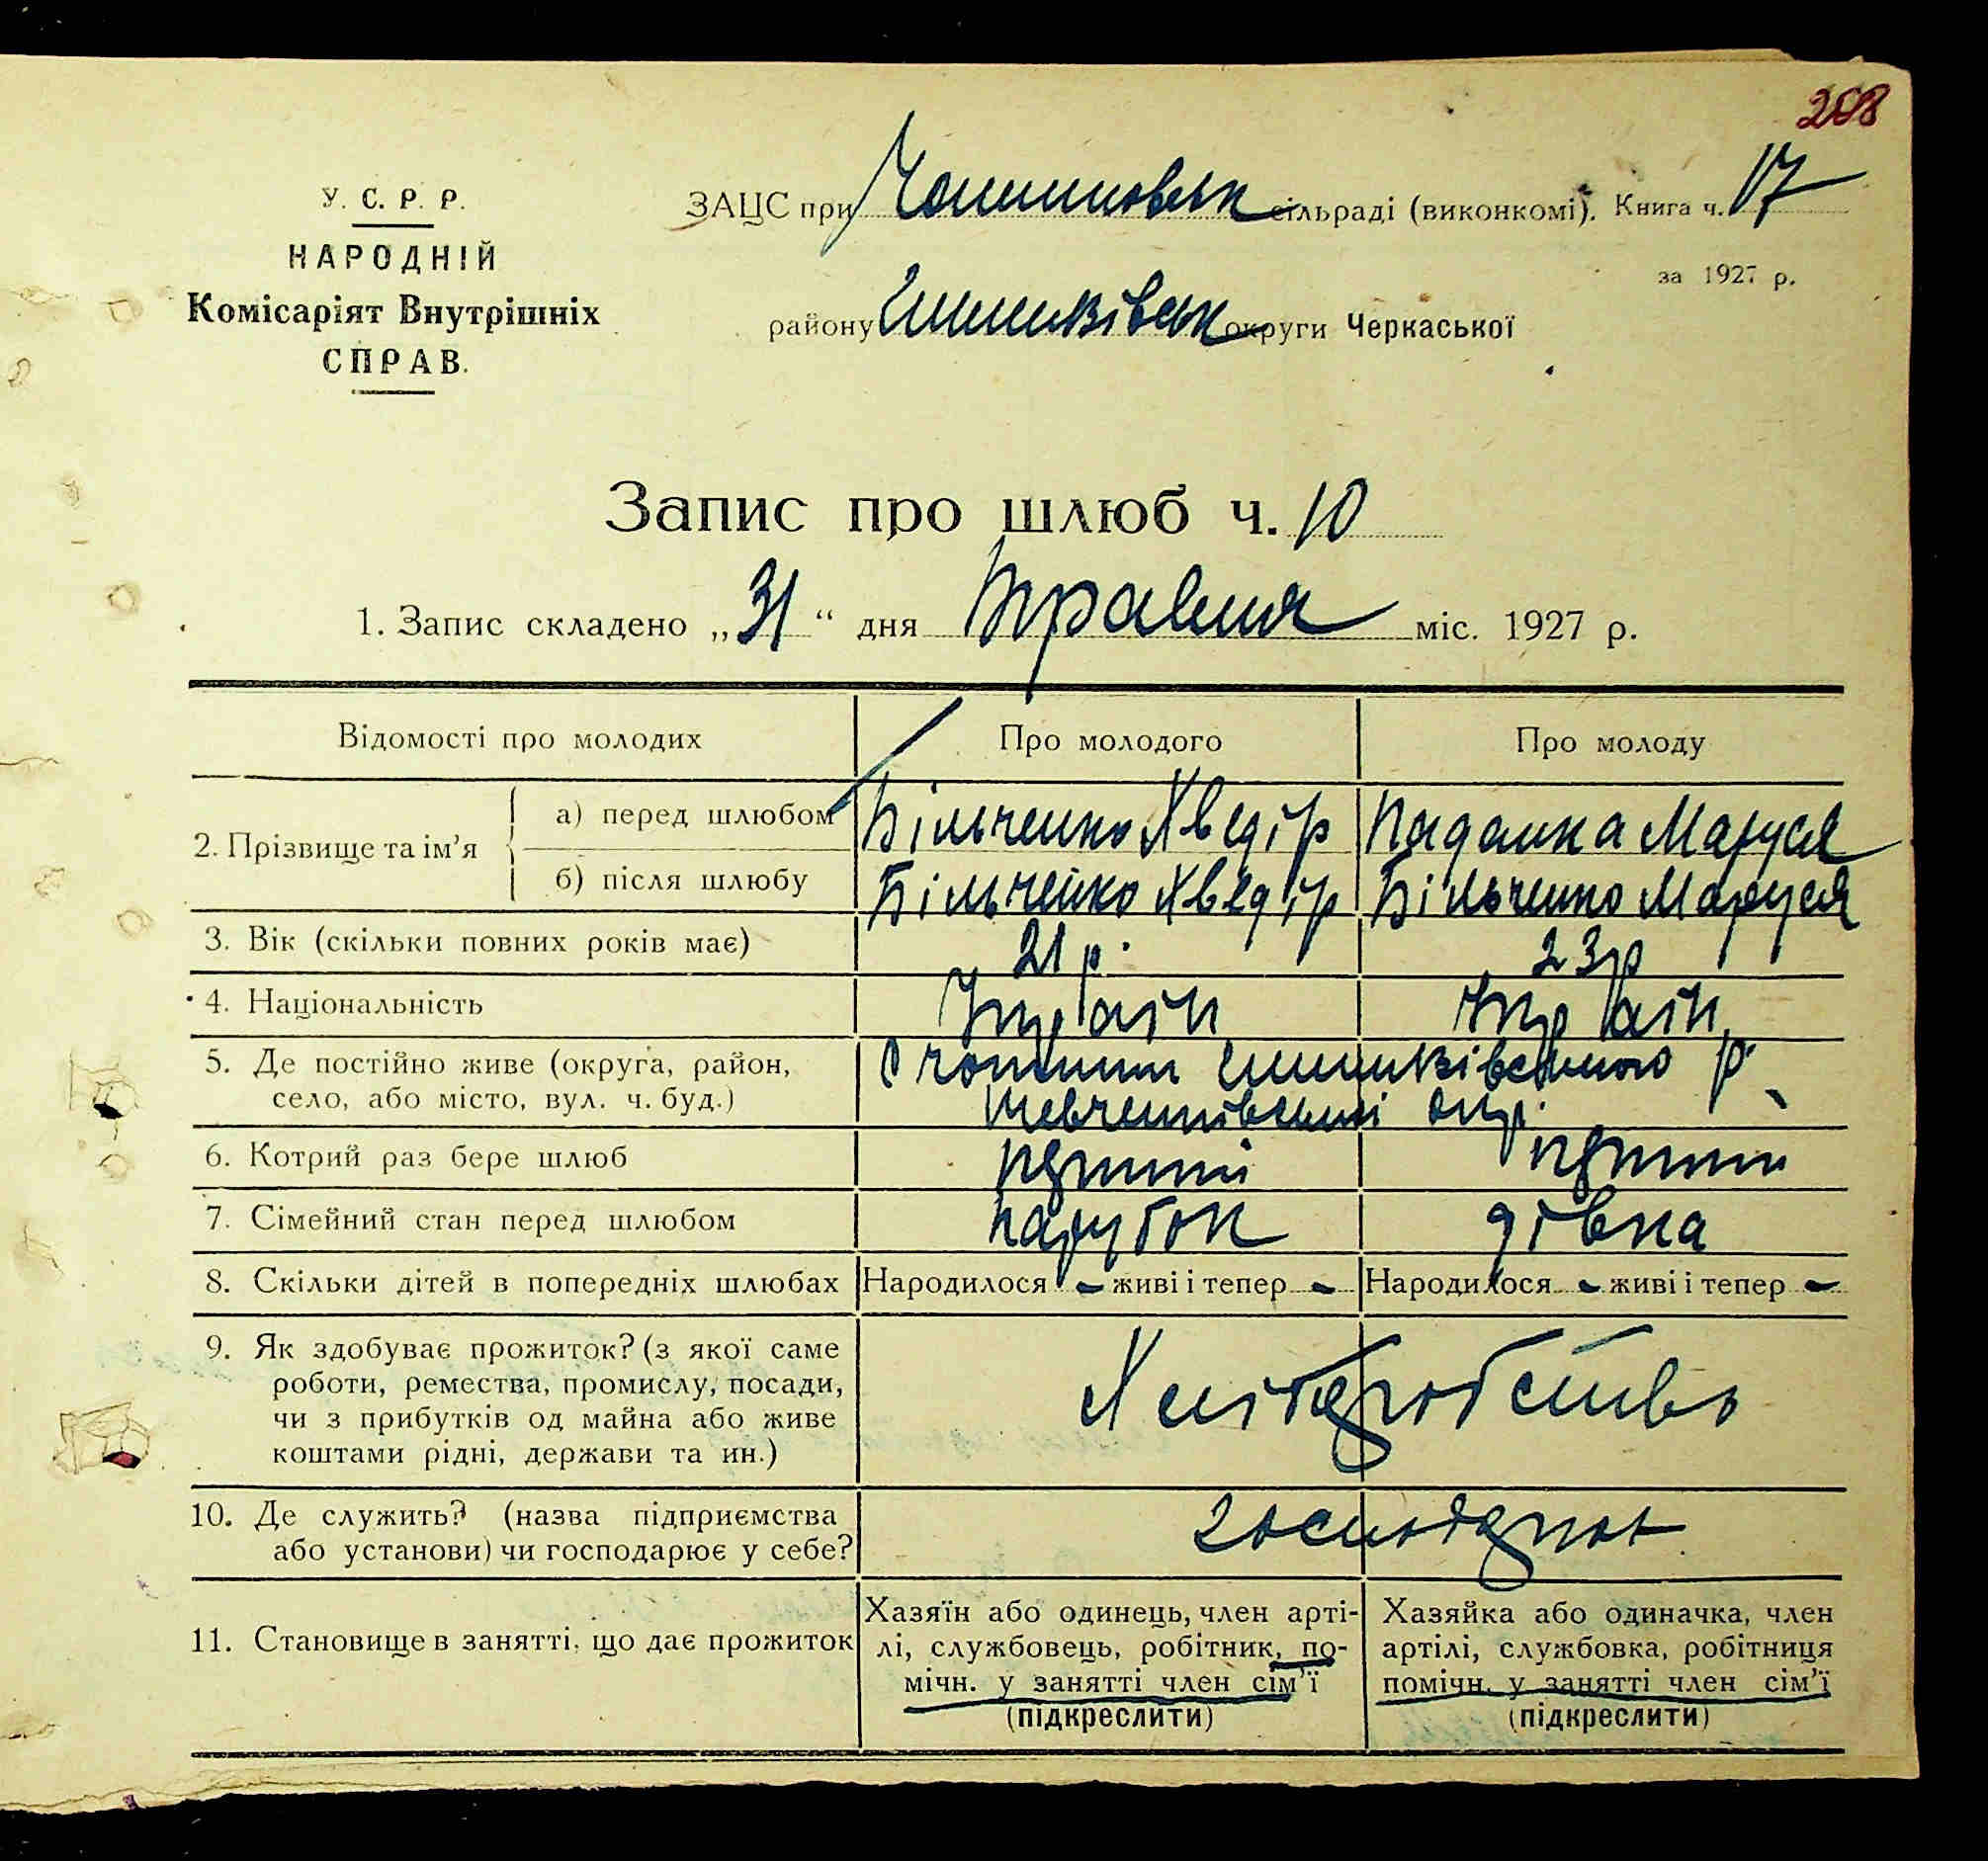 208
У. С. Р. Р.
НАРОДНІЙ
Комісаріят Внутрішніх
СПРАВ.
ЗАЦС при сільраді (виконкомі). Книга ч. 17
за 1927 р.
району округи Черкаської
Запис про шлюб ч. 10
1. Запис складено „31“ дня Травня міс. 1927 р.
Відомості про молодих Про молодого Про молоду
2. Прізвище та ім’я
а) перед шлюбом Більченко Хведір Маруся
б) після шлюбу Більченко Хведір Більченко Маруся
3. Вік (скільки повних років має) 21 р. 23 р
4. Національність Україн Україн
5. Де постійно живе (округа, район, р.
село, або місто, вул. ч. буд.) Шевченківської окр.
6. Котрий раз бере шлюб
7. Сімейний стан перед шлюбом парубок дівка
8. Скільки дітей в попередніх шлюбах Народилося - живі і тепер - Народилося - живі і тепер -
9. Як здобуває прожиток? (з якої саме
роботи, ремества, промислу, посади,
чи з прибутків од майна або живе
коштами рідні, держави та ин.)
Хліборобство
10. Де служить? (назва підприємства
або установи) чи господарює у себе?
11. Становище в занятті, що дає прожиток
Хазяїн або одинець, член арті-
лі, службовець, робітник, по-
мічн. у занятті член сім’ї
(підкреслити)
Хазяйка або одиначка, член
артілі, службовка, робітниця
помічн. у занятті член сім’ї
(підкреслити)